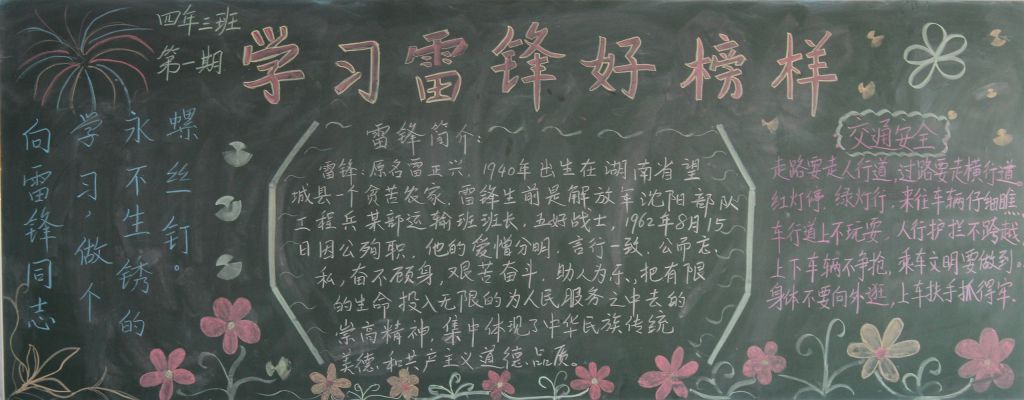 四年三班
第一期
学习雷锋好榜样
向雷锋同志
学习，做个
永不生锈的
螺丝钉。
雷锋简介：
雷锋：原名雷正兴，1940年出生在湖南省望
城县一个贫苦农家，雷锋生前是解放军沈阳部队
工程兵某部运输班班长，五好战士，1962年8月15
日因公殉职，他的爱憎分明，言行一致，公而忘
私，奋不顾身，艰苦奋斗，助人为乐，把有限
的生命投入无限的为人民服务之中去的
崇高精神，集中体现了中华民族传统
美德和共产主义道德品质。
交通安全
走路要走人行道，过路要走横行道
红灯停 绿灯行，来往车辆仔细瞧
车行道上不玩耍，人行护拦不跨越
上下车辆不争抢，乘车文明要做到。
身体不要向外逛，上车扶手抓得牢。